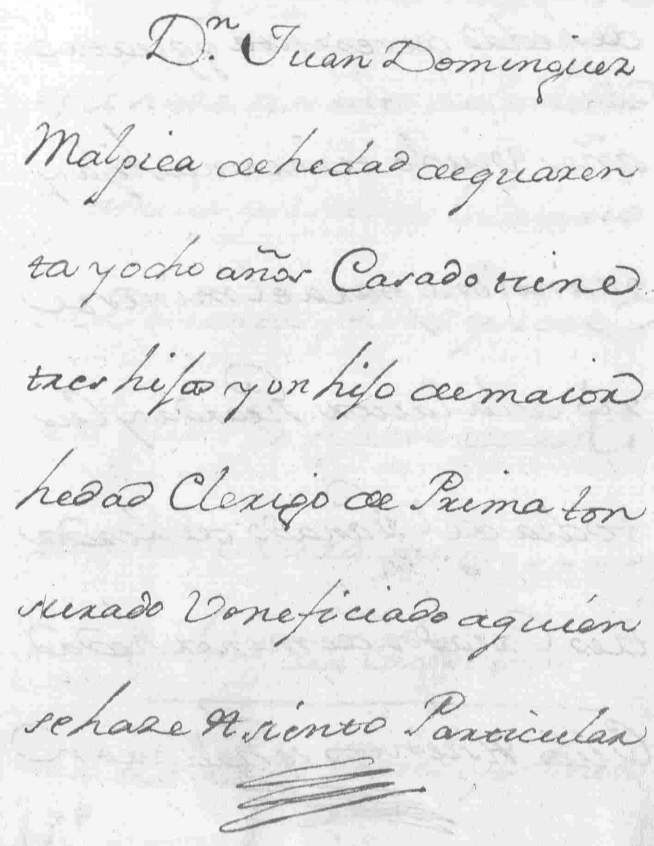 D.n Juan Dominguez
Malpica de hedad de quaren
ta y ocho años Casado tiene
tres hijas y un hijo de maior
hedad Clerigo de Prima ton
surado Veneficiado a quien
se haze Asiento Particular